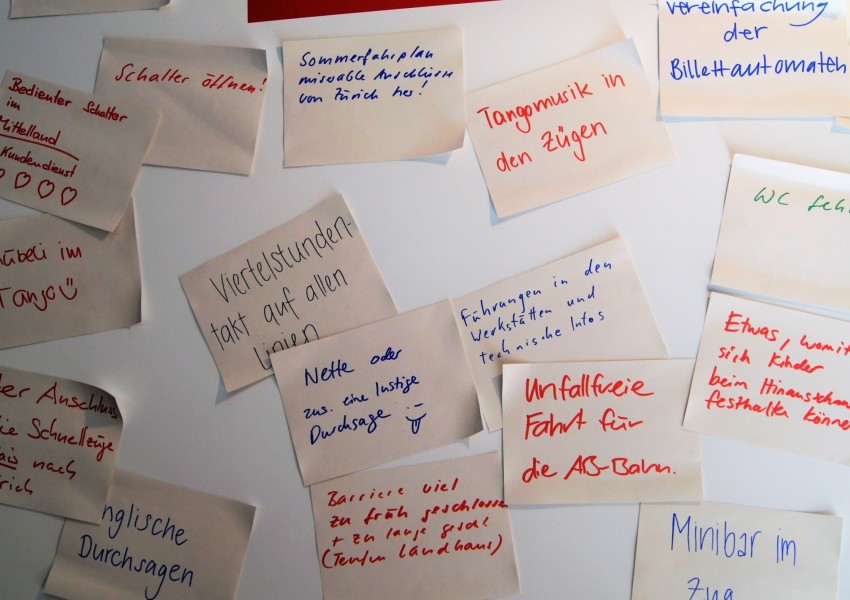 Vereinfachung
der
Billettautomaten
Schalter öffnen!
Sommerfahrplan
miserable Anschlüsse
von Zürich her!
Tangomusik in
den Zügen
Bedienter Schalter
im
Mittelland
Kundendienst
im
Tango
WC
Viertelstunden-
takt auf allen
Linien
Führungen in den
Werkstätten und
technische Infos
Nette oder
zus. eine lustige
Durchsage
Unfallfreie
Fahrt für
die AB-Bahn.
Etwas, womit
sich Kinder
beim
festhalten
Anschluss
Schnellzüge
nach
nglische
Durchsagen
Barriere viel
zu früh geschlossen
+ zu lange
(Teufen Landhaus)
Minibar im
Zug